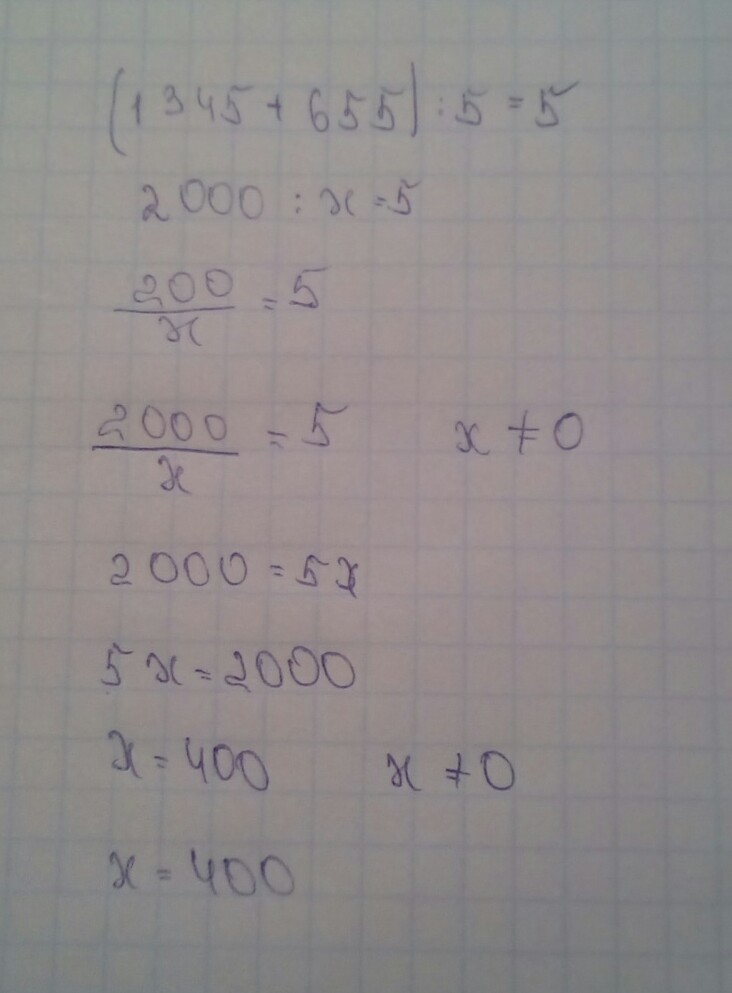 (1345+655):5=5
2000:x=5
200/x=5
2000/x=5 x≠0
2000=5x
5x=2000
x=400 x≠0
x=400